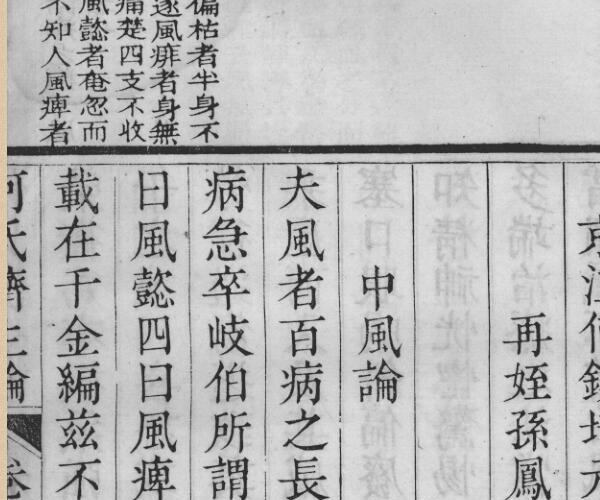 偏枯者半身不
遂風痱者身無
痛楚四支不收
風懿者奄忽而
不知人風痺者
京江何鎮培元
再姪孫鳳
中風論
夫風者百病之長
病急卒岐伯所謂
曰風懿四曰風痺
載在千金編茲不
何氏濟生論
卷